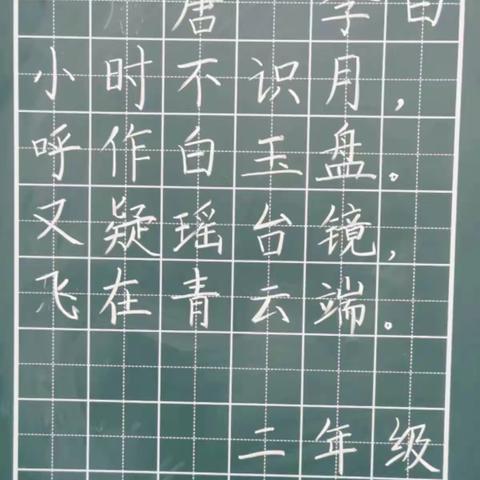 唐 李白
小时不识月，
呼作白玉盘。
又疑瑶台镜，
飞在青云端。
二年级